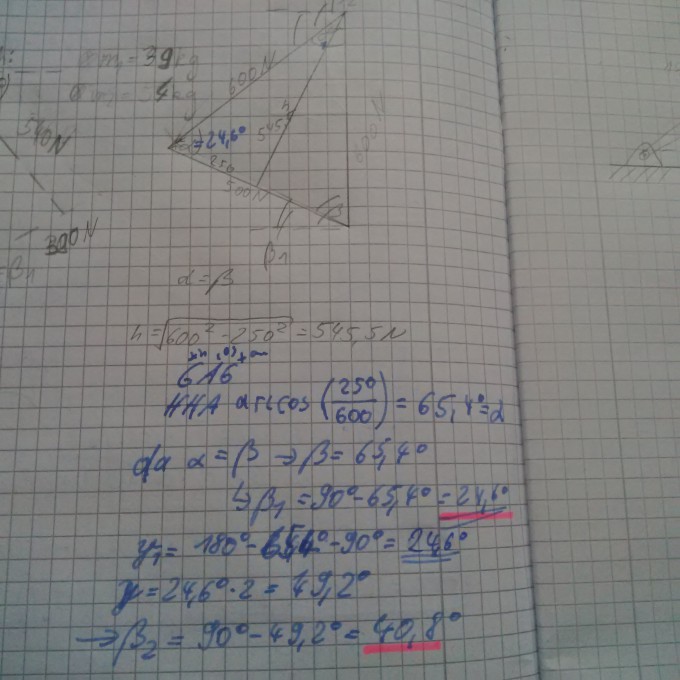 m₁ = 39kg
m₂ = 34kg
540N
380N
600N
= 24,6°
250
500N
h
545,5
600N
β
β₁
α = β
h = √(600² - 250²) = 545,5N
GAG
HHA arccos (250/600) = 65,4° = α
da α = β → β = 65,4°
↳ β₁ = 90° - 65,4° = 24,6°
γ₁ = 180° - 65,4° - 90° = 24,6°
γ = 24,6° · 2 = 49,2°
→ β₂ = 90° - 49,2° = 40,8°